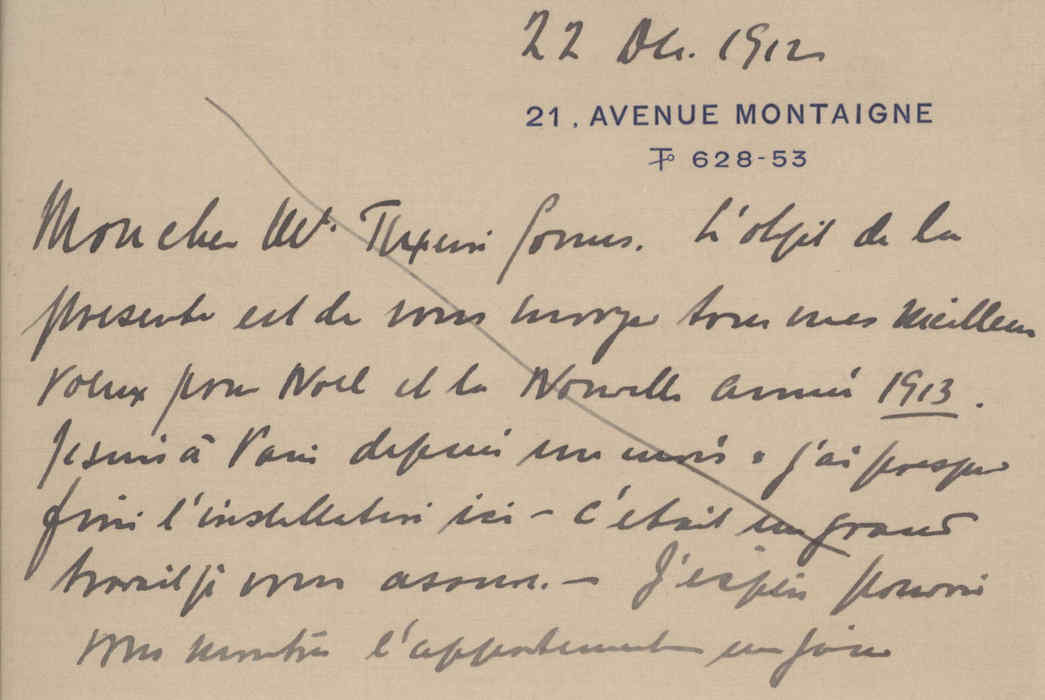 22 Dec. 1912
21, AVENUE MONTAIGNE
628-53
Mon cher Mr. Teixeira Gomes. L'objet de la
presente est de vous envoyer tous mes meilleurs
voeux pour Noël et la Nouvelle année 1913.
Je suis à Paris depuis un mois. j'ai presque
fini l'installation ici - c'était un grand
travail je vous assure. - J'espère pouvoir
vous montrer l'appartement un jour